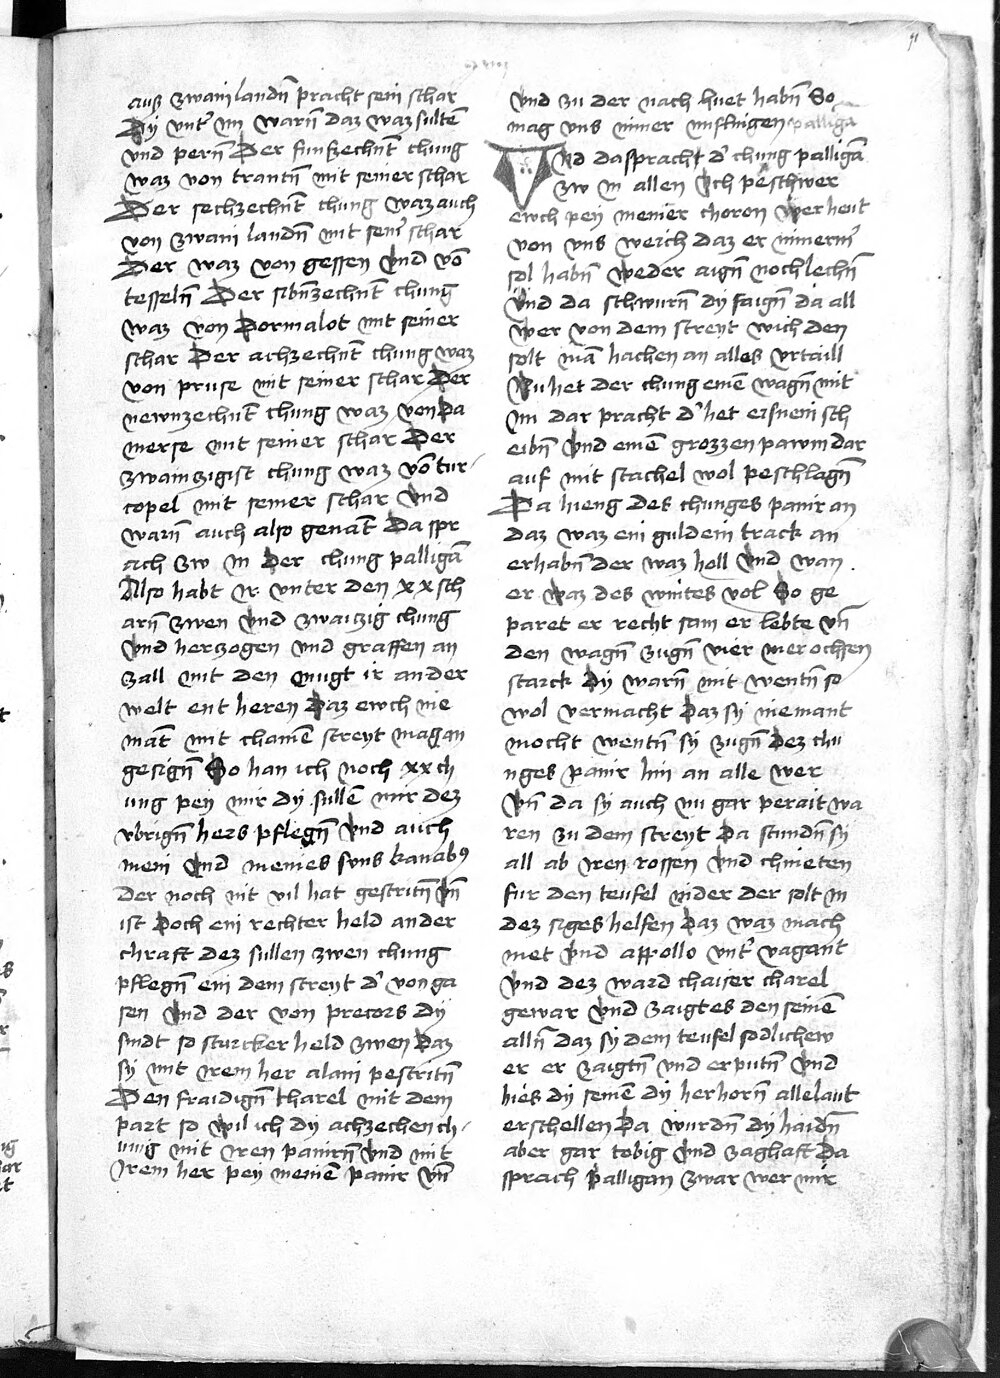 91
auß zwain landn̄ pracht sein schar
Dy vnt' im warn̄ daz waz sultē
vnd pern̄ Der funfzechnt̄ chung
waz von trantn̄ mit seiner schar
Der sechzechnt̄ chung waz auch
von zwain landn̄ mit sein' schar
Der waz von gessen vnd vō
tesseln̄ Der sibn̄zechnt̄ chung
waz von Dormalot mit seiner
schar Der achzechnt̄ chung waz
von pruse mit seiner schar Der
newnzechnt̄ chung waz von Pa
merse mit seiner schar Der
zwainzigist chung waz vō tur
copel mit seiner schar vnd
warn̄ auch also genāt Da spr
ach zw in der chung palligā
Also habt ir vnter den xx sch
arn̄ zwen vnd zwaizig chung
vnd herzogen vnd graffen an
zall mit den mugt ir an der
welt ent heren Daz ewch nie
māt mit chainē streyt mag an
gesign̄ So han ich noch xx ch
ung pey mir dy sullē mir dez
vbrign̄ hers pflegn̄ vnd auch
mein vnd meines suns kanabꝰ
Der noch nit vil hat gestritn̄ vn̄
ist Doch ein rechter held an der
chraft dez sullen zwen chung
pflegn̄ ein dem streyt d' von ga
sen vnd der von precors dy
sindt so starcker held zwen Daz
sy mit irem her alain pestritn̄
Den fraidign̄ kharel mit dem
part so wil ich dy achzechen ch
ung mit iren panirn̄ vnd mit
irem her pey meinē panir vn̄
vnd zu der nach huet habn̄ So
mag vns nimer misslingen palliga
Vnd da spracht d' chung palligā
zw in allen Ich peschwer
ewch pey meiner choron Wer heut
von vns weich daz er nimerm'
sol habn̄ weder aign̄ noch lechn̄
Vnd da schwurn̄ dy faign̄ da all
Wer von dem streyt wich den
solt mā hachen an alles vrtaill
Nu het der chung einē wagn̄ mit
im dar pracht d' het eisnein sch
eibn̄ vnd einē grozzen pawm dar
auf mit stachel wol peschlagn̄
Da hieng des chunges panir an
daz waz ein guldein track an
erhabn̄ der waz holl vnd wan
er waz des wintes vol So ge
paret er recht sam er lebte vn̄
den wagn̄ zugn̄ vier mer ochsen
starck Dy warn̄ mit wentn̄ so
wol vermacht Daz sy niemant
mocht wentn̄ sy zugn̄ dez chu
nges panir hin an alle wer
vn̄ da sy auch nu gar perait wa
ren zu dem streyt Da stundn̄ sy
all ab iren rossen vnd chnieten
fur den teufel nider der solt in
dez siges helfen Daz waz mach
met vnd appollo vnt' vagant
vnd dez ward chaiser charel
gewar vnd zaigt es den seinē
alln̄ daz sy dem teufel sodlichew
er er zaigtn̄ vnd erputn̄ vnd
hies dy seinē dy herhorn̄ alle laut
erschellen Da wurdn̄ dy haidn̄
aber gar tobig vnd zaghaft Da
sprach palligan zwar wer mir